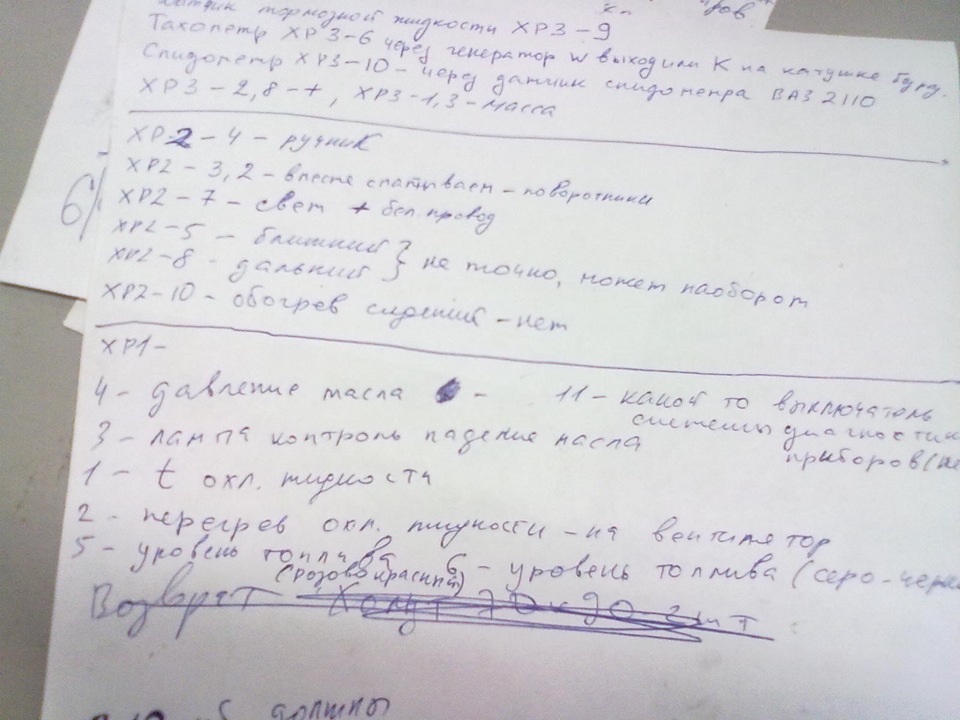 датчик тормозной жидкости ХР3-9
Тахометр ХР3-6 через генератор W выходили К на катушке
Спидометр ХР3-10 - через датчик спидометра ВАЗ 2110
ХР3-2,8-+, ХР3-1,3-масса
ХР2-4-ручник
ХР2-3,2-вместе спатываем-поворотники
ХР2-7-свет + бел. провод
ХР2-5-ближний } не точно, может наоборот
ХР2-8-дальний
ХР2-10-обогрев сидений-нет
ХР1-
4-давление масла - 11-какой то выключатель
системы диагностик
приборов(не
3-лампа контроль падение масла
1-t охл. жидкости
2-перегрев охл. жидкости-на вентилятор
5-уровень топлива 6-уровень топлива (серо-черн
(розовокрасный)
Возврат
должны
6/